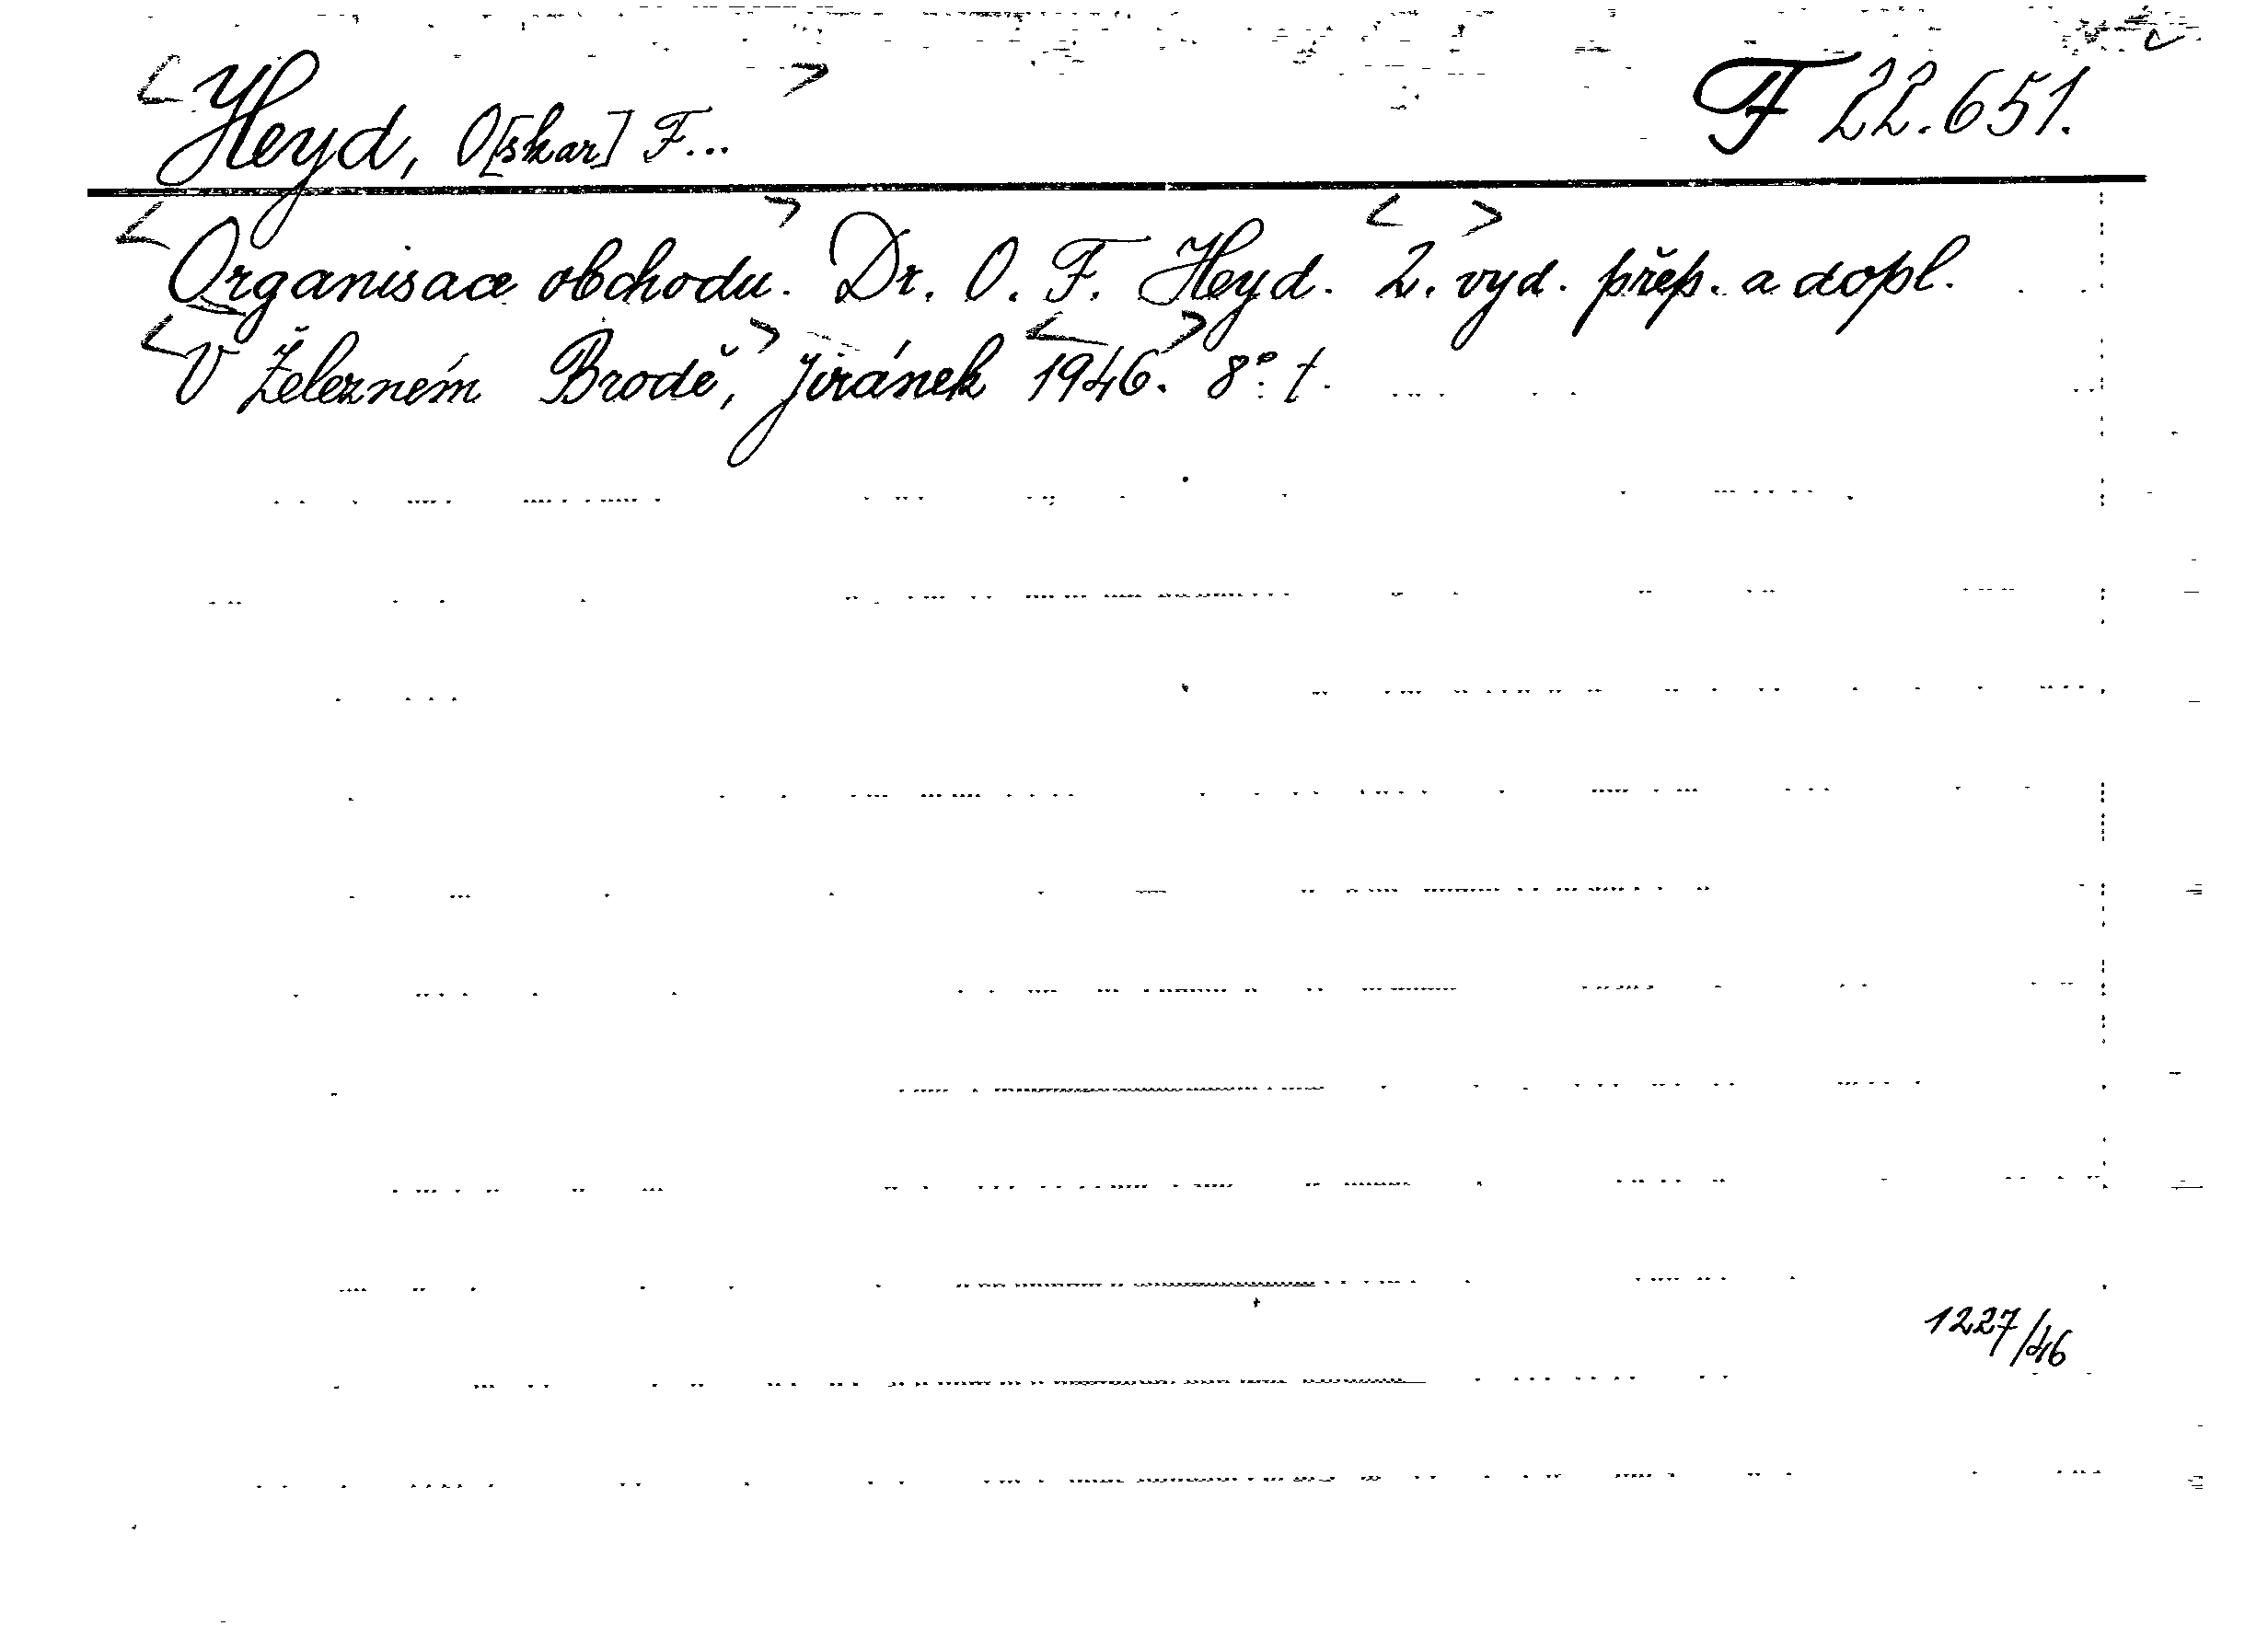 <Heyd, O[skar] F...> F 22.651.
<Organisace obchodu.> Dr. O. F. Heyd. <2.> vyd. přep. a dopl.
<V Železném Brodě,> Jiránek <1946.> 8° t.
1227/46